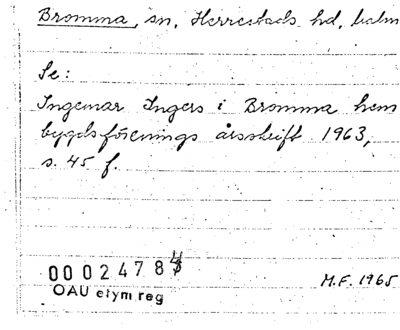 Bromma, sn, Herrestads hd, Malm
Se:
Ingemar Ingers i Bromma hem
bygdsförenings årsskrift 1963,
s. 45 f.
M.F. 1965
OAU etym.reg